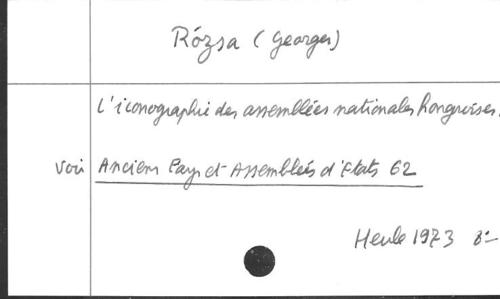 Rózsa (Georges)
L'iconographie des assemblées nationales hongroises.
voir Anciens Pays et Assemblées d'Etats 62
Heule 1973 8°